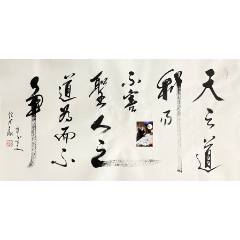 天之道
利而
不害
聖人之
道為而不
争